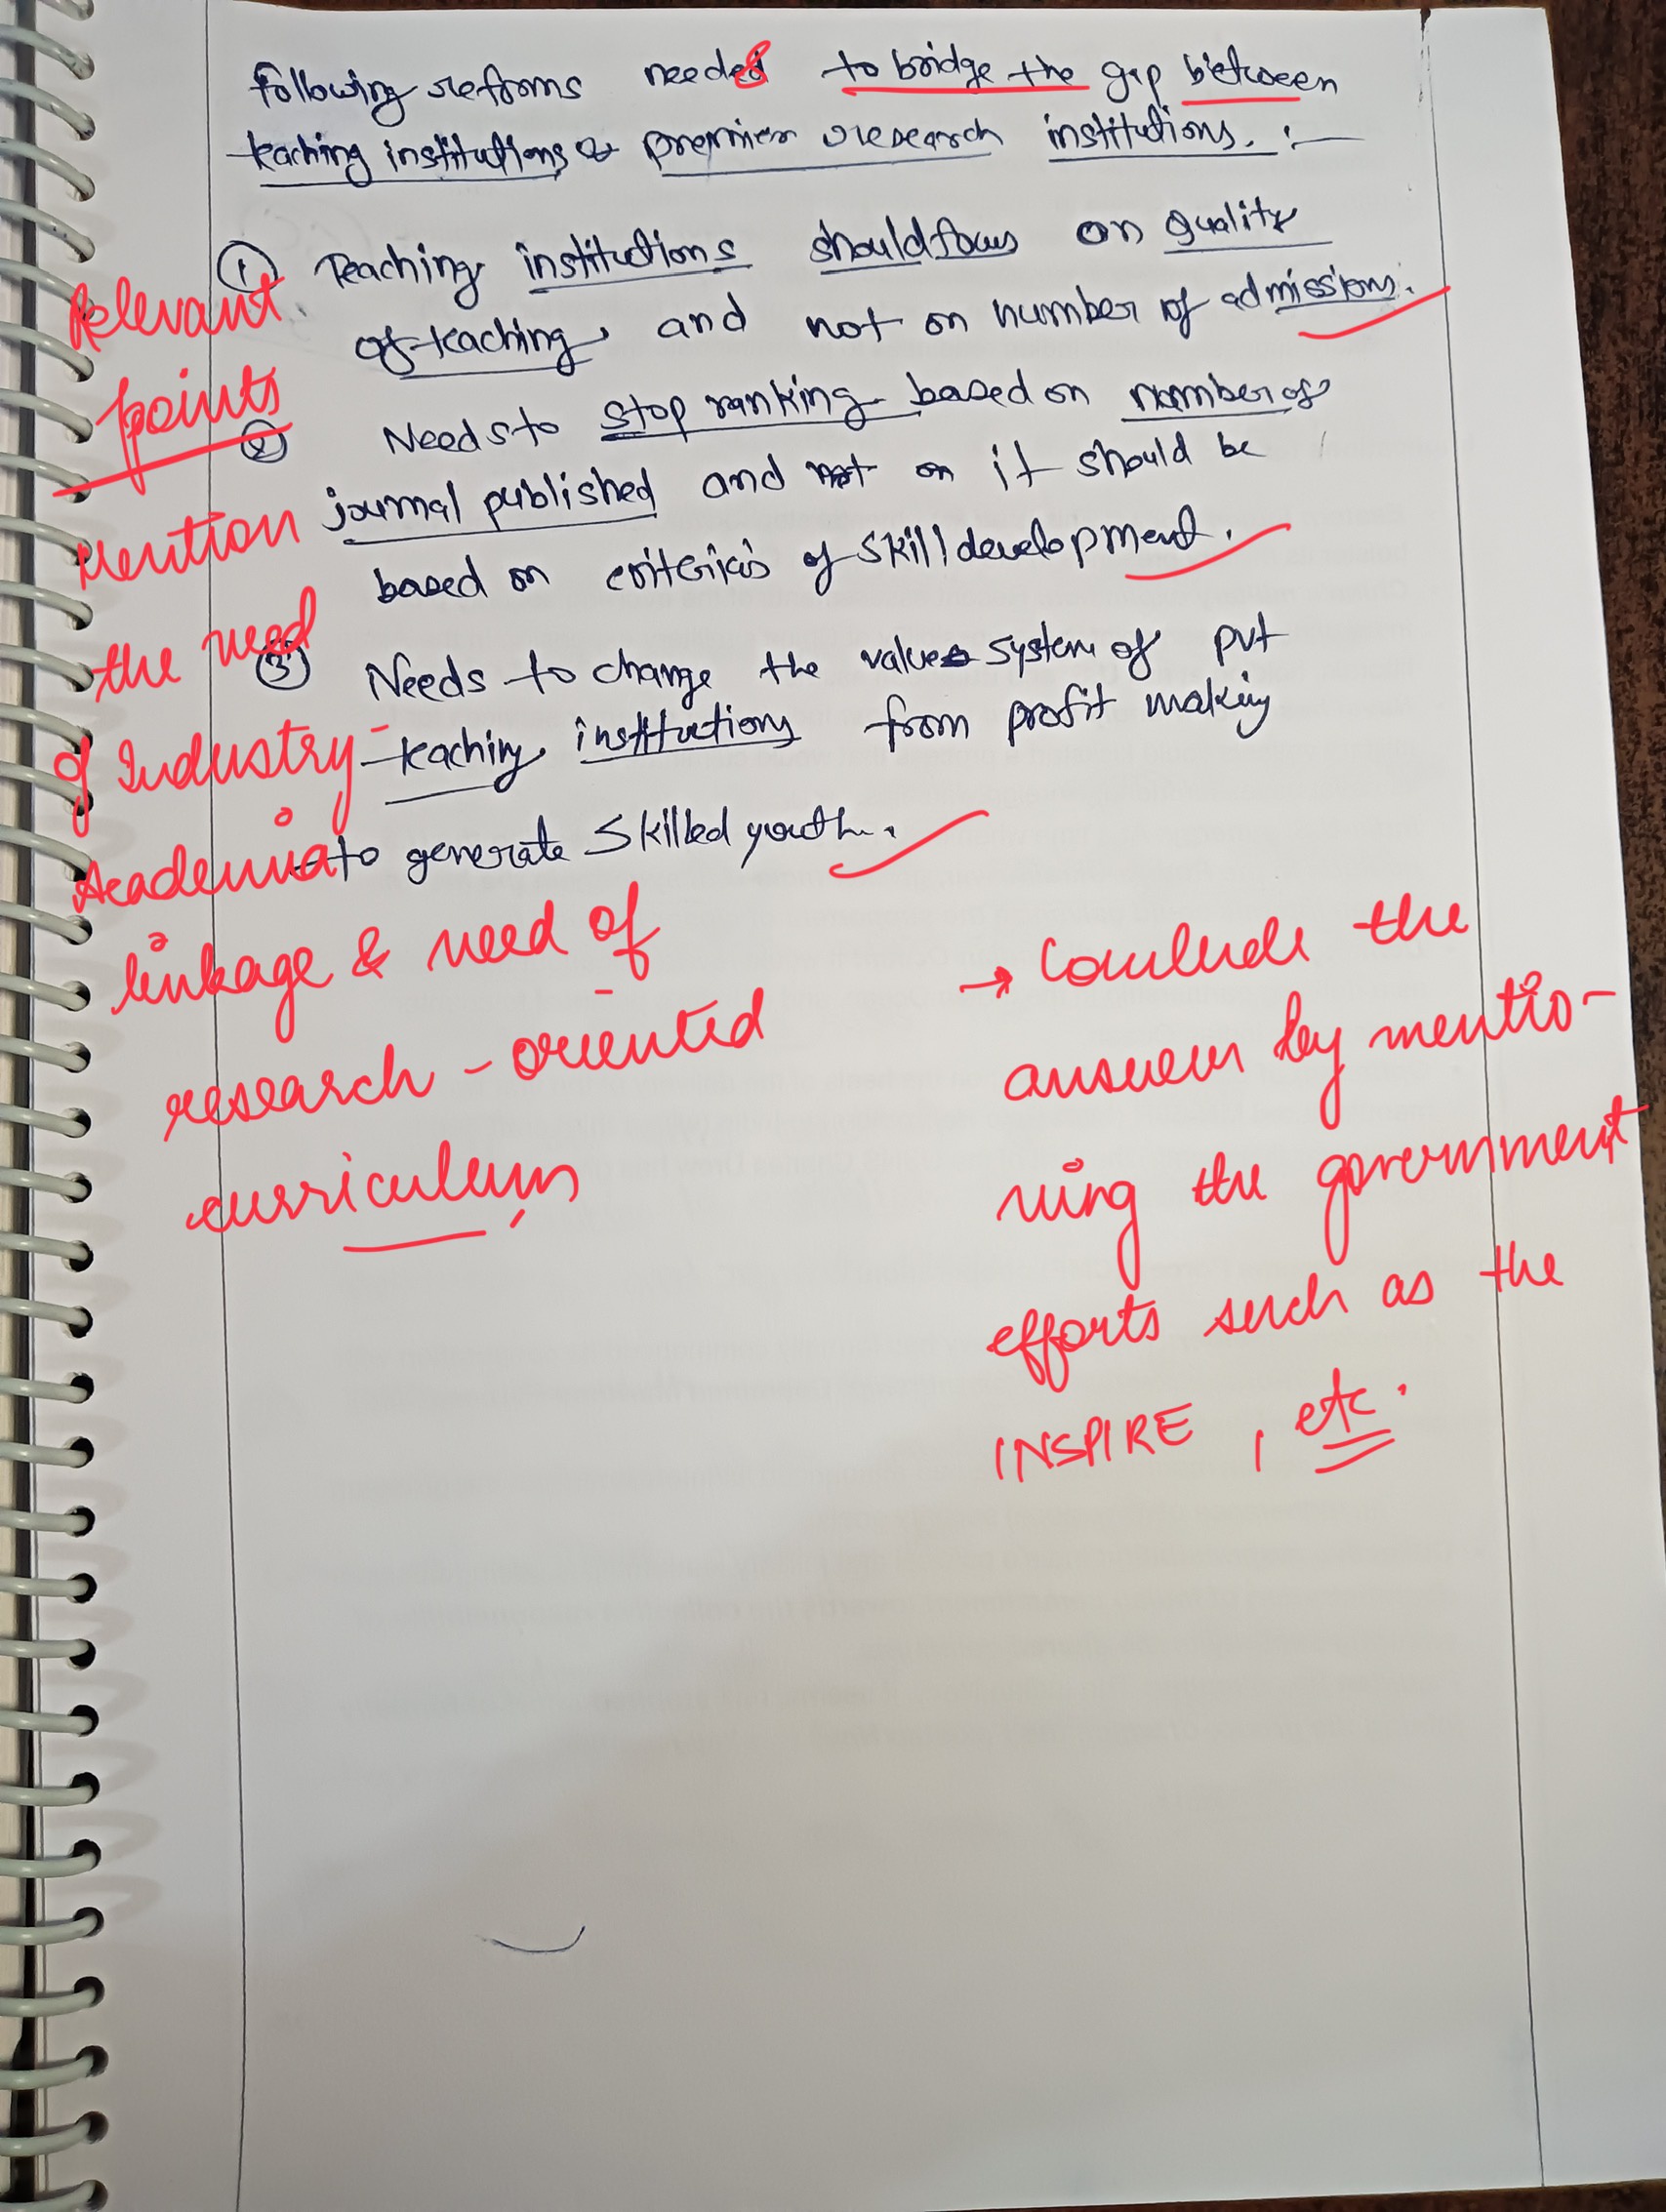 following reforms needed to bridge the gap between
teaching institutions & premier research institutions. :-
① Teaching institutions should focus on quality
of teaching, and not on number of admissions.
② Needs to stop ranking based on number of
journal published and not on it should be
based on criteria's of skill development.
③ Needs to change the value system of pvt
teaching institutions from profit making
to generate skilled youth.
Relevant
points
Mention
the need
of Industry-
Academia
linkage & need of
research-oriented
curriculum
→ Conclude the
answer by mentio-
ning the government
efforts such as the
INSPIRE, etc.